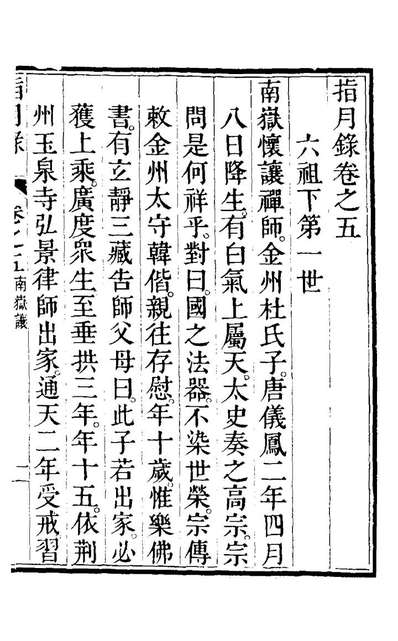 指月錄卷之五
六祖下第一世
南嶽懷讓禪師。金州杜氏子。唐儀鳳二年四月
八日降生。有白氣上屬天。太史奏之高宗。宗
問是何祥乎。對曰。國之法器。不染世榮。宗傳
敕金州太守韓偕。親往存慰。年十歲。惟樂佛
書。有玄靜三藏告師父母曰。此子若出家。必
獲上乘。廣度眾生。至垂拱三年。年十五。依荆
州玉泉寺弘景律師出家。通天二年受戒習
指月錄 卷之五 南嶽讓 一